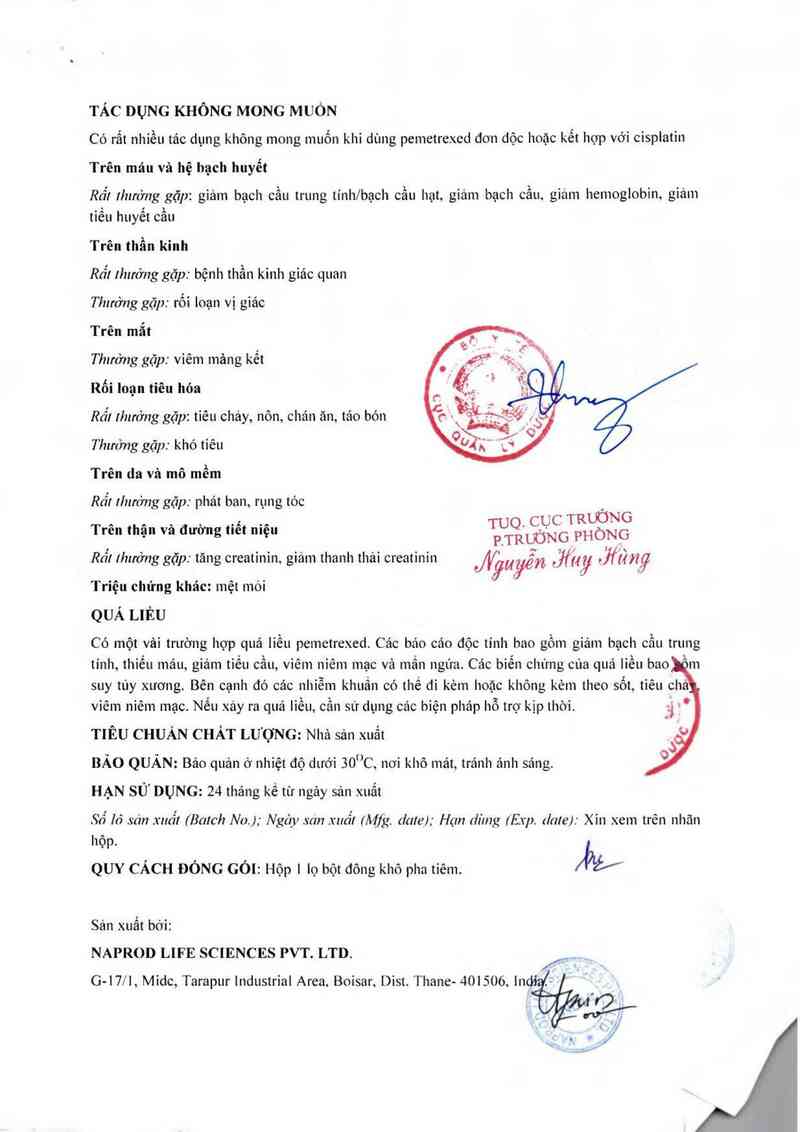 TÁC DỤNG KHÔNG MONG MUỐN
Có rất nhiều tác dụng không mong muốn khi dùng pemetrexed đơn độc hoặc kết hợp với cisplatin
Trên máu và hệ bạch huyết
Rất thường gặp: giảm bạch cầu trung tính/bạch cầu hạt, giảm bạch cầu, giảm hemoglobin, giảm
tiểu huyết cầu
Trên thần kinh
Rất thường gặp: bệnh thần kinh giác quan
Thường gặp: rối loạn vị giác
Trên mắt
Thường gặp: viêm màng kết
Rối loạn tiêu hóa
Rất thường gặp: tiêu chảy, nôn, chán ăn, táo bón
Thường gặp: khó tiêu
Trên da và mô mềm
Rất thường gặp: phát ban, rụng tóc
Trên thận và đường tiết niệu
Rất thường gặp: tăng creatinin, giảm thanh thải creatinin
Triệu chứng khác: mệt mỏi
BỘ Y TẾ
CỤC QUẢN LÝ DƯỢC
TUQ. CỤC TRƯỞNG
P.TRƯỞNG PHÒNG
Nguyễn Huy Hùng
QUÁ LIỀU
Có một vài trường hợp quá liều pemetrexed. Các báo cáo độc tính bao gồm giảm bạch cầu trung
tính, thiếu máu, giảm tiểu cầu, viêm niêm mạc và mẩn ngứa. Các biến chứng của quá liều bao gồm
suy tủy xương. Bên cạnh đó các nhiễm khuẩn có thể đi kèm hoặc không kèm theo sốt, tiêu chảy,
viêm niêm mạc. Nếu xảy ra quá liều, cần sử dụng các biện pháp hỗ trợ kịp thời.
TIÊU CHUẨN CHẤT LƯỢNG: Nhà sản xuất
BẢO QUẢN: Bảo quản ở nhiệt độ dưới 30°C, nơi khô mát, tránh ánh sáng.
DƯỢC
HẠN SỬ DỤNG: 24 tháng kể từ ngày sản xuất
Số lô sản xuất (Batch No.); Ngày sản xuất (Mfg. date); Hạn dùng (Exp. date): Xin xem trên nhãn
hộp.
QUY CÁCH ĐÓNG GÓI: Hộp 1 lọ bột đông khô pha tiêm.
Sản xuất bởi:
NAPROD LIFE SCIENCES PVT. LTD.
G-17/1, Midc, Tarapur Industrial Area, Boisar, Dist. Thane- 401506, India.